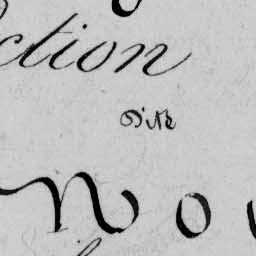 ction
Dité
No